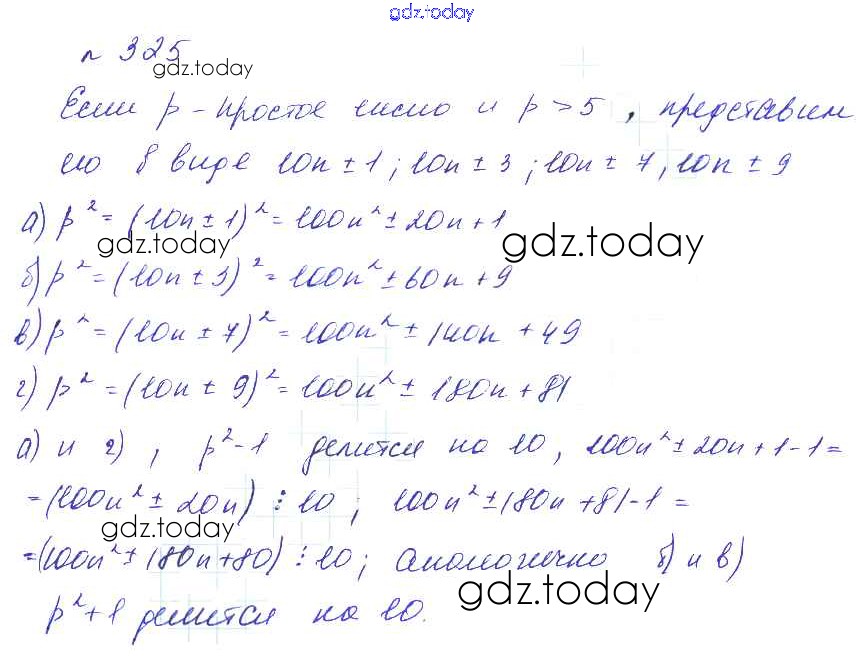 gdz.today
n 325
gdz.today
Если p - простое число и p > 5, представим
его в виде 10n ± 1; 10n ± 3; 10n ± 7, 10n ± 9
а) p² = (10n ± 1)² = 100n² ± 20n + 1
gdz.today gdz.today
б) p² = (10n ± 3)² = 100n² ± 60n + 9
в) p² = (10n ± 7)² = 100n² ± 140n + 49
г) p² = (10n ± 9)² = 100n² ± 180n + 81
а) и г), p² - 1 делится на 10, 100n² ± 20n + 1 - 1 =
= (100n² ± 20n) ⋮ 10; 100n² ± 180n + 81 - 1 =
gdz.today
= (100n² ± 180n + 80) ⋮ 10; аналогично б) и в)
gdz.today
p² + 1 делится на 10.